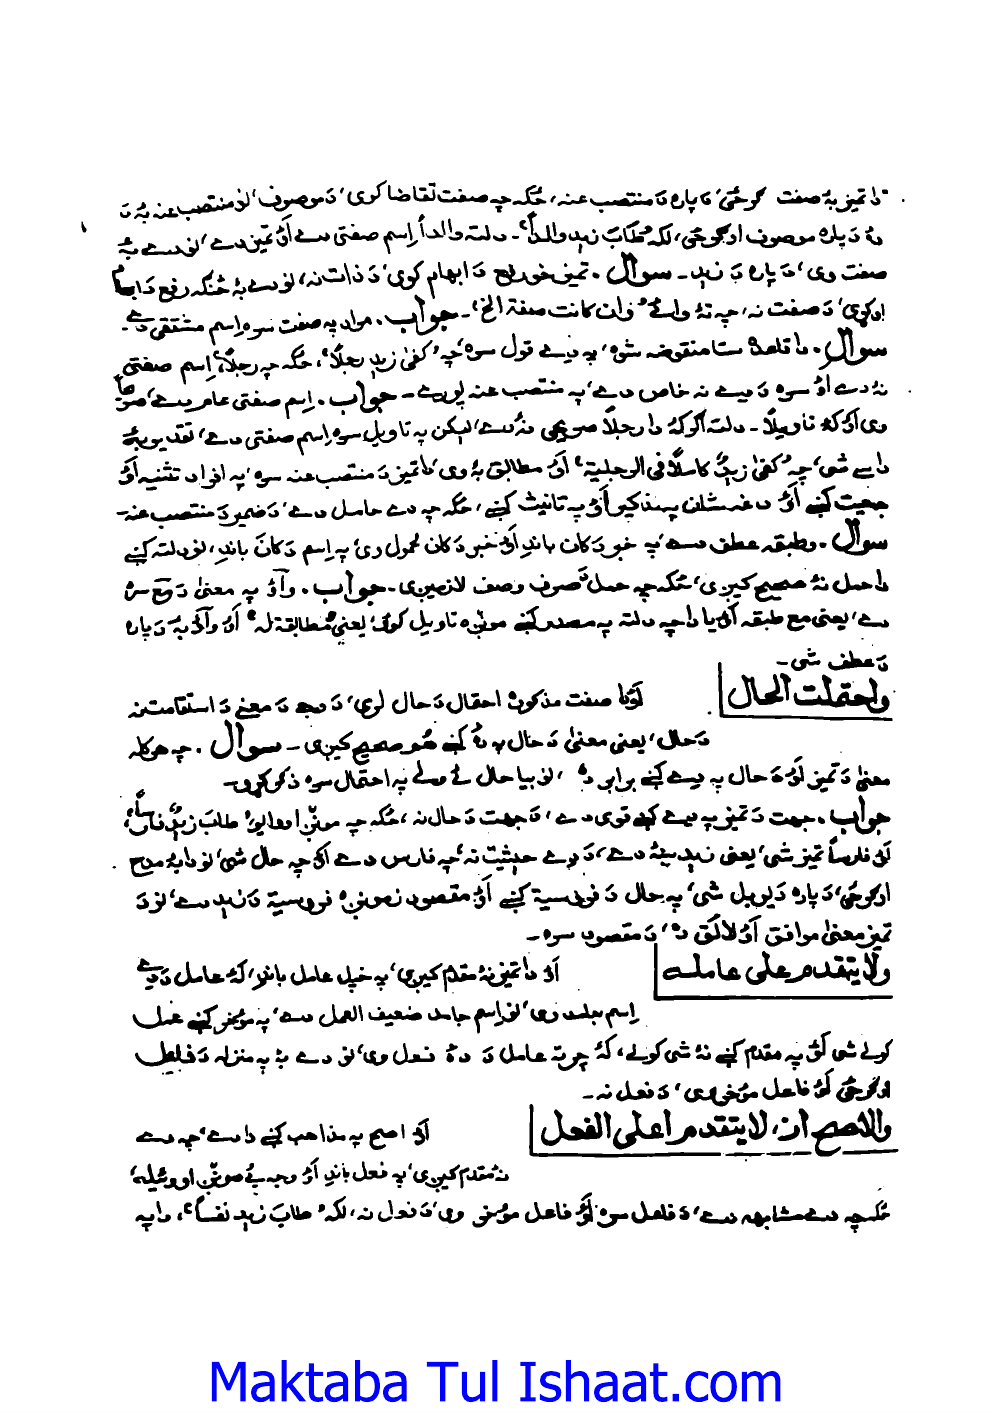 دا تميز به صفت ګرځي، دپاره د منتصب عنه، ځکه چه صفت تقاضا کوی، د موصوف، نو منتصب عنه به د
ده دپاره موصوف اوګرځی، لکه طاب زید والداً، ـ دلته والداً اِسم صفتی دے اَؤ تميز دے، نو دے به
صفت وی، دپاره د زید ـ سوال. تميز خو رفع د ابهام کوی، د ذات نه، نو دے به څنګه رفع د ابهام
اوکړی، د صفت نه، چه تۀ وائے وان کانت صفة الخ، ـ جواب. مراد په صفت سره اِسم مشتقی دے ـ
سوال. دا قاعده ستا منقوضه شوه، په دے قول سره، چه کفیٰ زیدٌ رجلاً، ځکه چه رجلاً، اِسم صفتی
نۀ دے اَؤ سره د دے نه خاص دے، په منتصب عنه پورے ـ جواب. اِسم صفتی عام دے، صریحاً
وی اَؤ که تاویلاً ـ دلته اګرکه دا رجلاً صریحی نۀ دے، لیکن په تاویل سره اِسم صفتی دے، تقدیر به ئے
داسے شی، چه کفیٰ زیدٌ کاملاً فی الرجلیة، اَؤ مطابق به وی، دا تميز د منتصب عنه سره، په افراد تثنیه اَؤ
جمعیت کښے اَؤ دغه شان په تذکیر اَؤ په تانیث کښے، ځکه چه دے حامل دے، د ضمیر د منتصب عنه ـ
سوال. وطبقه عطف دے، په خبر د کان باندِ اَؤ خبر د کان محمول وی، په اِسم د کان باندِ، نو دلته کښے
دا حمل نۀ صحیح کیږی، ځکه چه حمل صرف وصف لازمیږی. جواب. واؤ په معنیٰ د مع سره
دے، یعنی مع طبقه اَؤ یا دا چه دلته په مصدر کښے مونږه تاویل کوؤ یعنی مطابقة له، اَؤ واؤ به دپاره
د عطف شی ـ
واحتملت الحال
اَؤ دا صفت مذکوره احتمال د حال لری، د وجه د معنے د استقامت نه
د حال، یعنی معنیٰ د حال په ده کښے هم صحیح کیږی ـ سوال. چه هرکله
معنیٰ د تميز اَؤ د حال په دے کښے برابره ده، نو بیا حال ئے ولے په احتمال سره ذکر کړو ـ
جواب. جهت د تميز په دے کښے قوی دے، د جهت د حال نه، ځکه چه مونږ اووایو طابَ زیدٌ فارساً،
اَؤ فارساً تميز شی، یعنی زید ښۀ دے، د دے حیثیت نه، چه فارس دے اَؤ چه حال شی، نو دا به مدح
اوګرځی، دپاره د زید شی، په حال د فروسیة کښے اَؤ مقصود زمونږه فروسیة د زید دے، نو د
تميز معنیٰ موافق اَؤ لائق ده، د مقصود سره ـ
ولا یتقدم علی عامله
اَؤ دا تميز نۀ مقدم کیږی، په خپل عامل باندِ، که عامل د دے
اِسم جامد وی، نو اِسم جامد ضعیف العمل دے، په مؤخر کښے عمل
کولے شی اَؤ په مقدم کښے نۀ شی کولے، که چرته عامل د ده فعل وی، نو دے به په منزله د فاعل
اوګرځی اَؤ فاعل مؤخر وی، د فعل نه ـ
والاصح ان لا یتقدم علی الفعل
اَؤ اصح په مذاهب کښے دا دے، چه دے
نۀ مقدم کیږی، په فعل باندِ اَؤ وجه ئے مونږ اووئیله،
ځکه چه دے مشابهه دے، د فاعل سره اَؤ فاعل مؤخر وی، د فعل نه، لکه طابَ زید نفساً، دا په
Maktaba Tul Ishaat.com